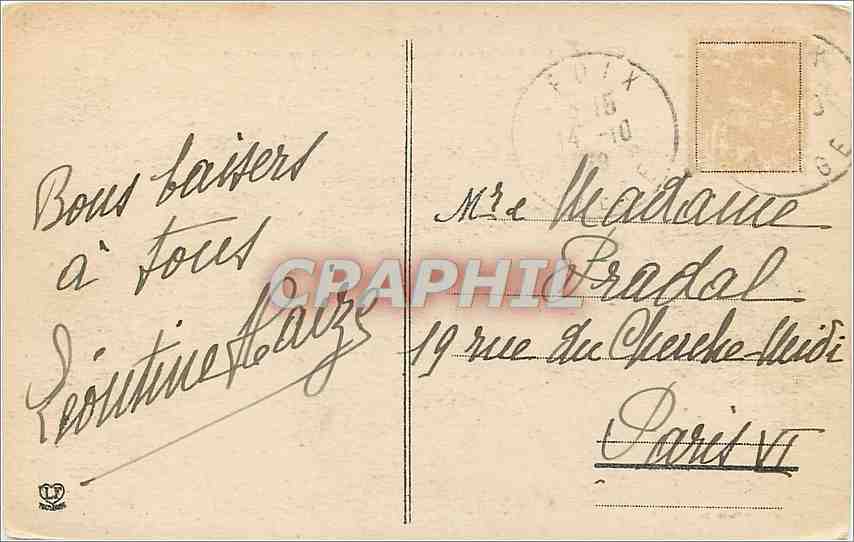 Bons baisers
à tous
Léontine
FOIX
14 -10
Mr & Madame
Pradal
19 rue du Cherche-Midi
Paris VI
CRAPHIL
LF